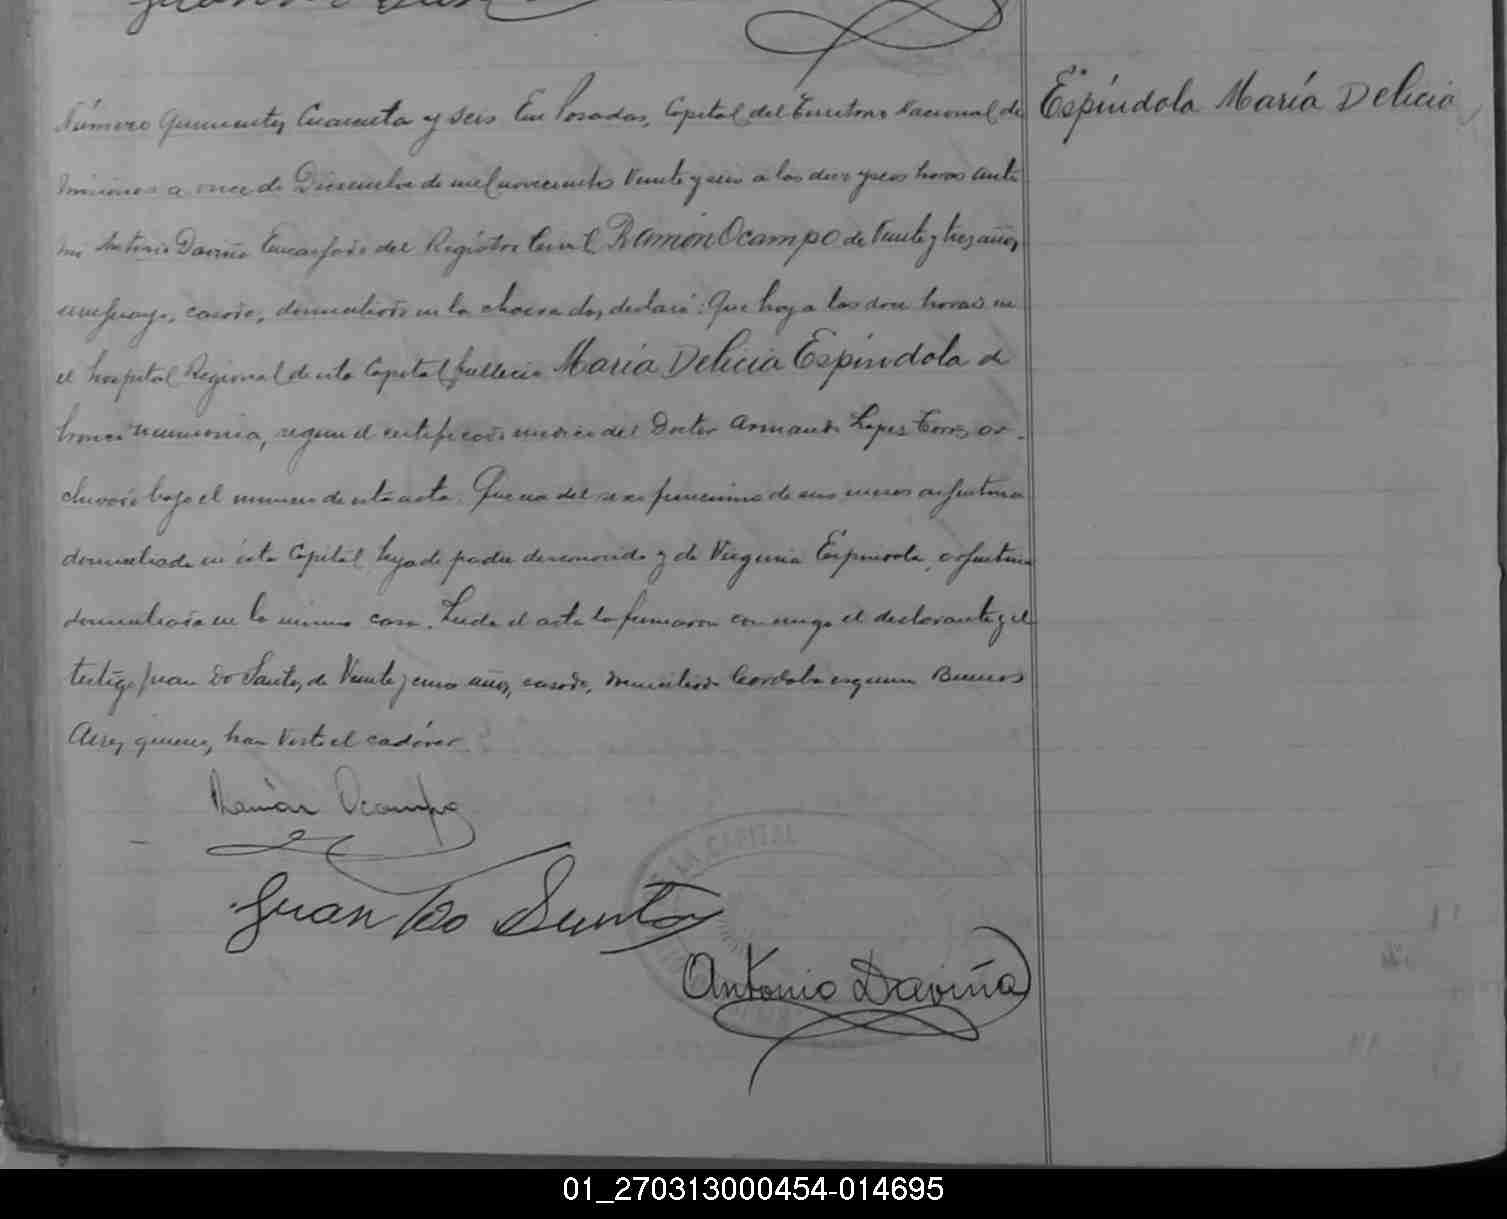 Espíndola María Delicia
Número Quinientos Cuarenta y seis En Posadas, Capital del Territorio Nacional de
Misiones a once de Diciembre de mil novecientos Veinte y seis a las diez y seis horas ante
mi Antonio Daviña Encargado del Registro Civil Ramón Ocampo de Veinte y tres años,
uruguayo, casado, domiciliado en la chacra dos, declaró: Que hoy a las doce horas en
el hospital Regional de esta Capital falleció María Delicia Espíndola de
bronco neumonia, segun el certificado médico del Doctor Armando Lopez Torres ar-
chivado bajo el numero de esta acta. Que era del sexo femenino de seis meses argentina
domiciliada en esta Capital hija de padre desconocido y de Virginia Espíndola, argentina
domiciliada en la misma casa. Leida el acta la firmaron conmigo el declarante y el
testigo Juan Do Santos, de Veinte y cinco años, casado, domiciliado Cordoba esquina Buenos
Aires quienes, han visto el cadáver
Ramón Ocampo
Juan Do Santos
LA CAPITAL
Antonio Daviña
01_270313000454-014695